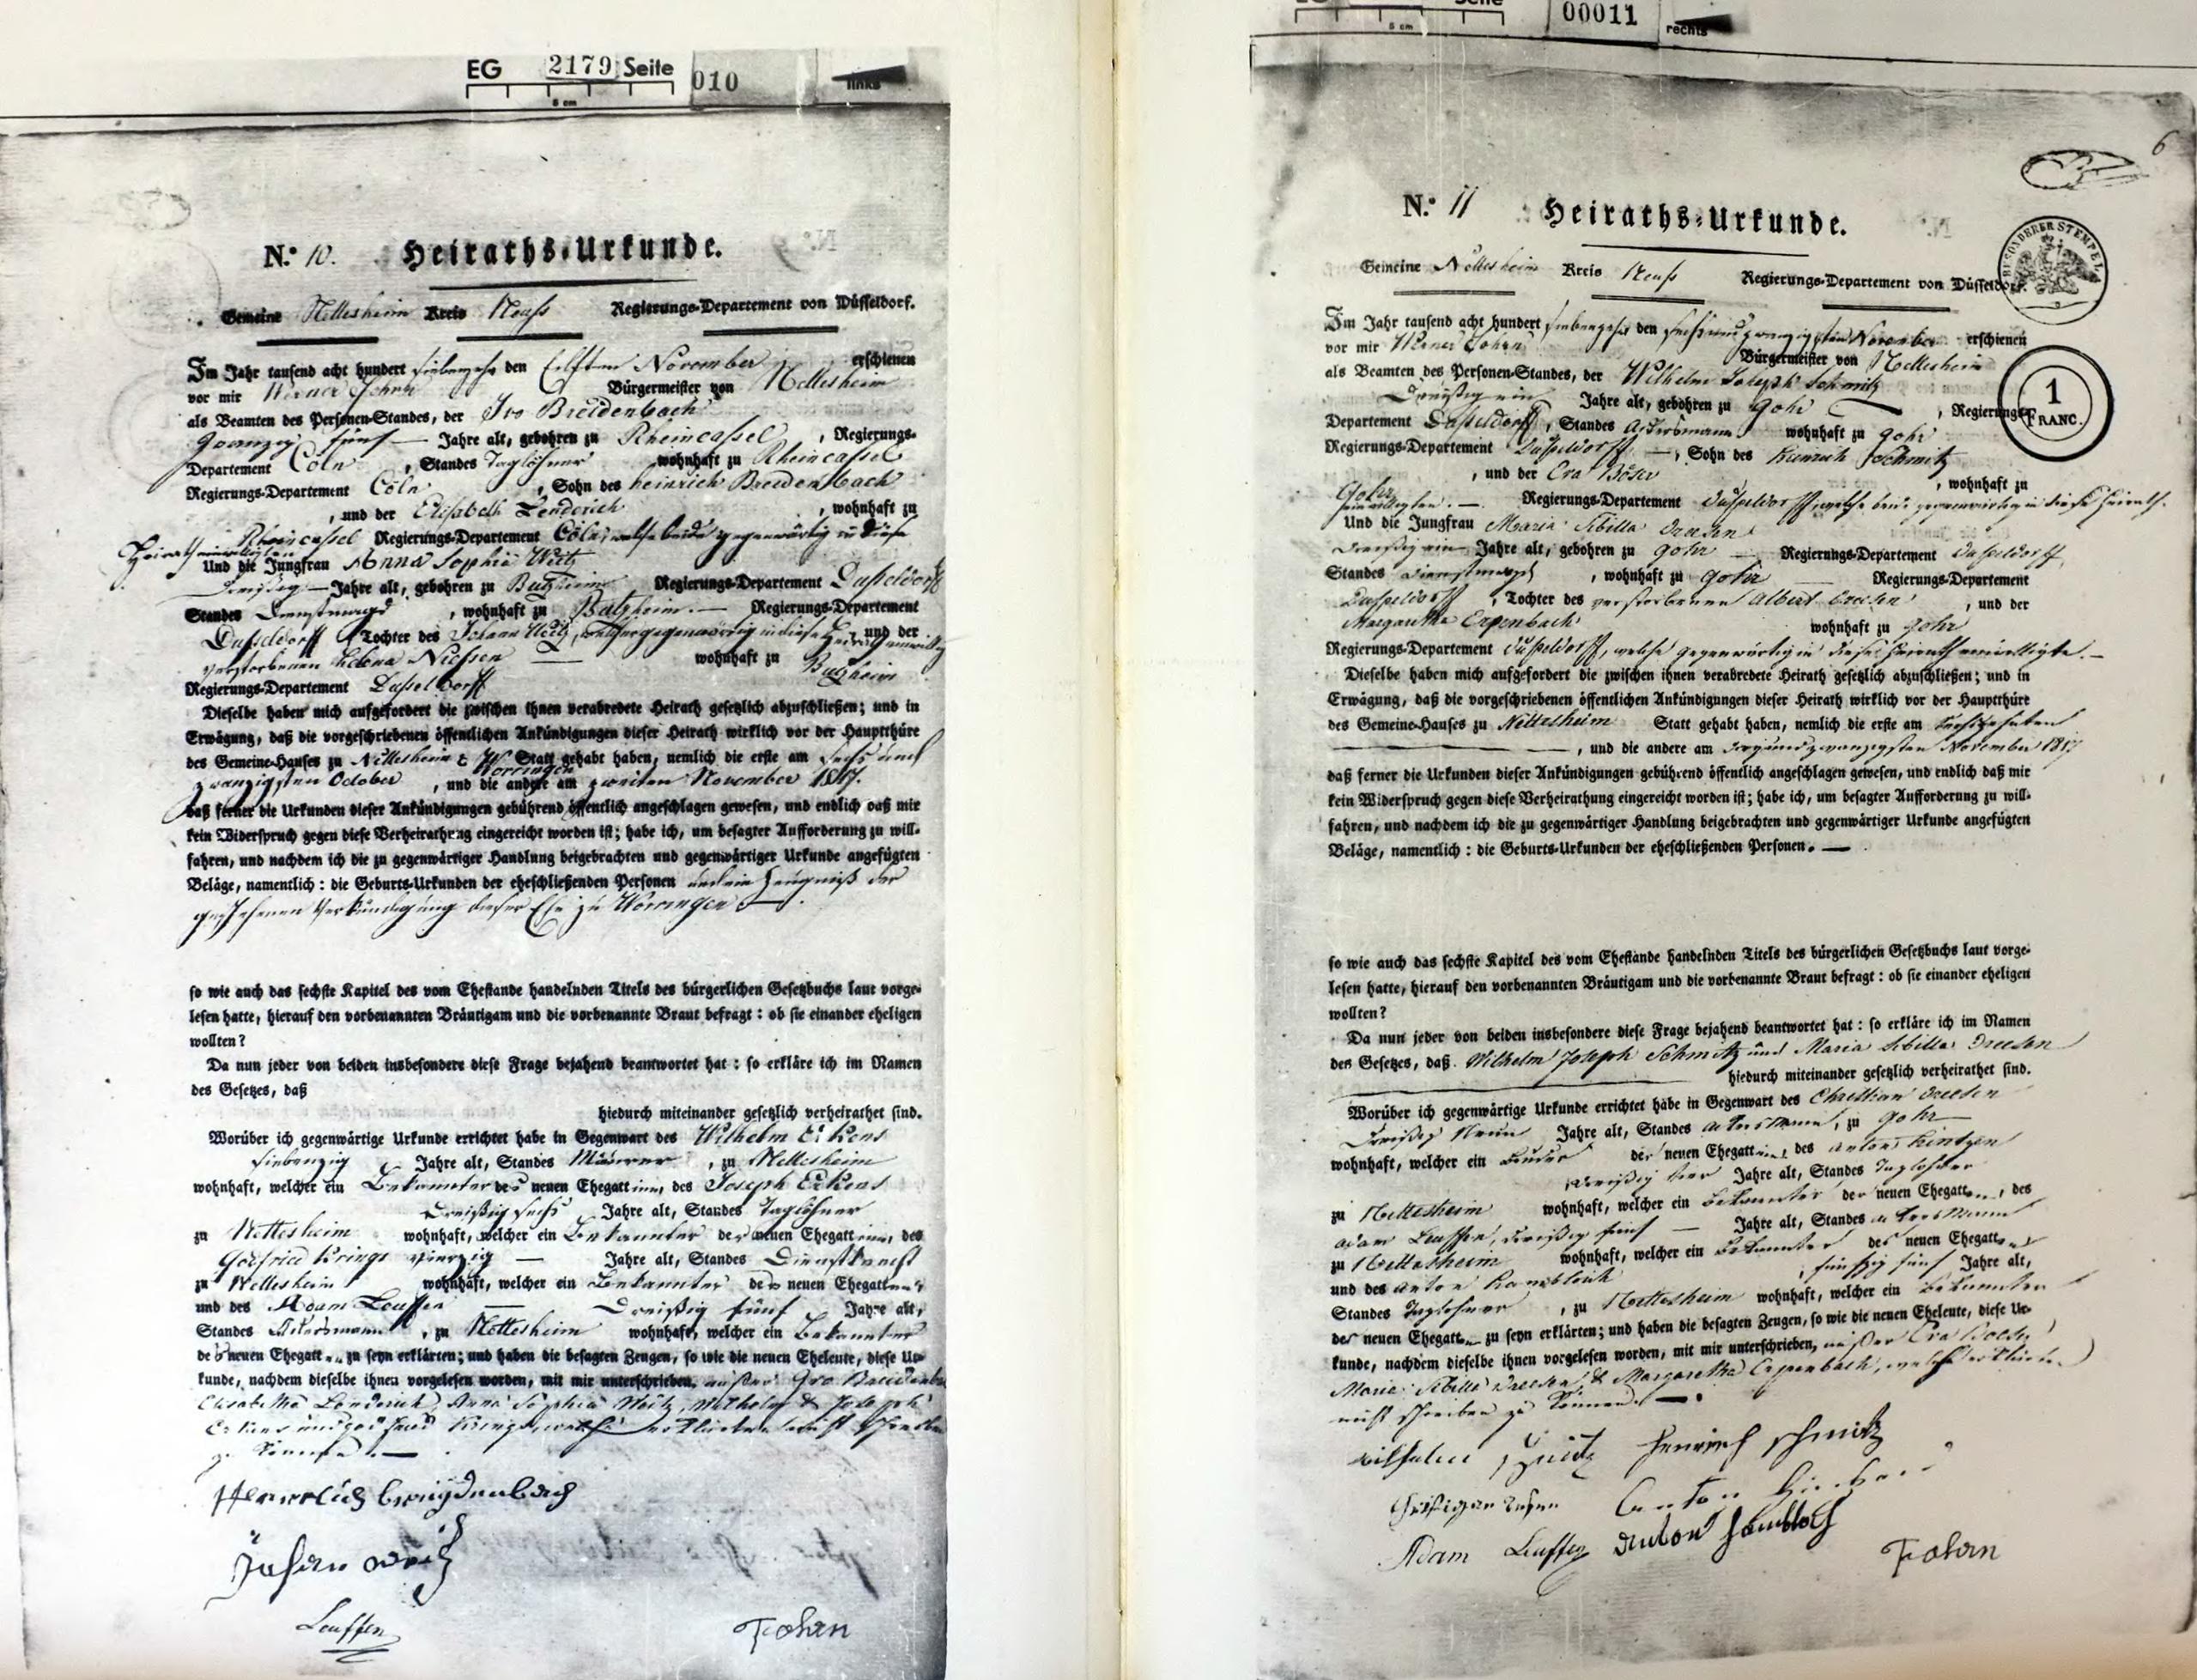 EG 2179 Seite 010 links
5 cm
N.° 10. Heiraths-Urkunde.
Gemeine Nettesheim Kreis Neuss Regierungs-Departement von Düsseldorf.
Im Jahr tausend acht hundert siebenzehn den Eilften November erschienen
vor mir Werner Johan Bürgermeister von Nettesheim
als Beamten des Personen-Standes, der Ivo Breidenbach
zwanzig fünf — Jahre alt, gebohren zu Rheincassel, Regierungs-
Departement Cöln, Standes Taglöhner wohnhaft zu Rheincassel
Regierungs-Departement Cöln, Sohn des Heinrich Breidenbach
, und der Elisabeth Lenderich, wohnhaft zu
Rheincassel Regierungs-Departement Cöln, welche beide gegenwärtig in diese
Heirath einwilligten
Und die Jungfrau Anna Sophia Weitz
Dreißig — Jahre alt, gebohren zu Butzheim Regierungs-Departement Dusseldorff
Standes Dienstmagd, wohnhaft zu Butzheim. — Regierungs-Departement
Dusseldorff Tochter des Johann Weitz, welcher gegenwärtig in diese Heirath einwilligt und der
verstorbenen Helena Niessen — wohnhaft zu Butzheim
Regierungs-Departement Dusseldorff
Dieselbe haben mich aufgefordert die zwischen ihnen verabredete Heirath gesetzlich abzuschließen; und in
Erwägung, daß die vorgeschriebenen öffentlichen Ankündigungen dieser Heirath wirklich vor der Hauptthüre
des Gemeine-Hauses zu Nettesheim & Worringen Statt gehabt haben, nemlich die erste am sechs und
zwanzigsten October, und die andere am zweiten November 1817.
daß ferner die Urkunden dieser Ankündigungen gebührend öffentlich angeschlagen gewesen, und endlich daß mir
kein Widerspruch gegen diese Verheirathung eingereicht worden ist; habe ich, um besagter Aufforderung zu will-
fahren, und nachdem ich die zu gegenwärtiger Handlung beigebrachten und gegenwärtiger Urkunde angefügten
Beläge, namentlich: die Geburts-Urkunden der eheschließenden Personen und ein Zeugniß der
geschehenen Verkündigung dieser Ehe zu Worringen —.
so wie auch das sechste Kapitel des vom Ehestande handelnden Titels des bürgerlichen Gesetzbuchs laut vorge-
lesen hatte, hierauf den vorbenannten Bräutigam und die vorbenannte Braut befragt: ob sie einander eheligen
wollten?
Da nun jeder von beiden insbesondere diese Frage bejahend beantwortet hat: so erkläre ich im Namen
des Gesetzes, daß
hiedurch miteinander gesetzlich verheirathet sind.
Worüber ich gegenwärtige Urkunde errichtet habe in Gegenwart des Wilhelm Erkens
siebenzig Jahre alt, Standes Maürer, zu Nettesheim
wohnhaft, welcher ein Bekannter des neuen Ehegattinn, des Joseph Erkens
Dreißig sechs Jahre alt, Standes Taglöhner
zu Nettesheim wohnhaft, welcher ein Bekannter der neuen Ehegattinn, des
Godfried Krings vierzig — Jahre alt, Standes Dienstknecht
zu Nettesheim wohnhaft, welcher ein Bekannter des neuen Ehegatten
und des Adam Leuffen — Dreißig fünf Jahre alt,
Standes Ackersmann, zu Nettesheim wohnhaft, welcher ein Bekannter
des neuen Ehegatten zu seyn erklärten; und haben die besagten Zeugen, so wie die neuen Eheleute, diese Ur-
kunde, nachdem dieselbe ihnen vorgelesen worden, mit mir unterschrieben, außer Ivo Breidenbach
Elisabetha Lenderich, Anna Sophia Weitz, Wilhelm & Joseph
Erkens und Godfried Krings, welche erklärten nicht schreiben
zu können. —
Henrich breydenbach
Johan weitz
Leuffen
Johan
00011 Seite rechts
5 cm
6
N.° 11 Heiraths-Urkunde.
BESONDERER STEMPEL
Gemeine Nettesheim Kreis Neuss Regierungs-Departement von Düsseldorf.
1 FRANC.
Im Jahr tausend acht hundert siebenzehn den sechsundzwanzigsten November erschienen
vor mir Werner Johan Bürgermeister von Nettesheim
als Beamten des Personen-Standes, der Wilhelm Joseph Schmitz
Dreißig ein Jahre alt, gebohren zu Gohr —, Regierungs-
Departement Dusseldorff, Standes Ackersmann wohnhaft zu Gohr
Regierungs-Departement Dusseldorff —, Sohn des Henrich Schmitz
, und der Eva Böser, wohnhaft zu
Gohr — Regierungs-Departement Dusseldorff, welche beide gegenwärtig in diese Heirath
einwilligten. —
Und die Jungfrau Maria Sibilla Dreesen
Dreißig ein Jahre alt, gebohren zu Gohr — Regierungs-Departement Dusseldorff
Standes Dienstmagd, wohnhaft zu Gohr — Regierungs-Departement
Dusseldorff, Tochter des verstorbenen Albert Dreesen, und der
Margaretha Erpenbach wohnhaft zu Gohr
Regierungs-Departement Dusseldorff, welche gegenwärtig in diese Heirath einwilligte. —
Dieselbe haben mich aufgefordert die zwischen ihnen verabredete Heirath gesetzlich abzuschließen; und in
Erwägung, daß die vorgeschriebenen öffentlichen Ankündigungen dieser Heirath wirklich vor der Hauptthüre
des Gemeine-Hauses zu Nettesheim Statt gehabt haben, nemlich die erste am sechszehnten
—, und die andere am dreyundzwanzigsten November 1817
daß ferner die Urkunden dieser Ankündigungen gebührend öffentlich angeschlagen gewesen, und endlich daß mir
kein Widerspruch gegen diese Verheirathung eingereicht worden ist; habe ich, um besagter Aufforderung zu will-
fahren, und nachdem ich die zu gegenwärtiger Handlung beigebrachten und gegenwärtiger Urkunde angefügten
Beläge, namentlich: die Geburts-Urkunden der eheschließenden Personen. —
so wie auch das sechste Kapitel des vom Ehestande handelnden Titels des bürgerlichen Gesetzbuchs laut vorge-
lesen hatte, hierauf den vorbenannten Bräutigam und die vorbenannte Braut befragt: ob sie einander eheligen
wollten?
Da nun jeder von beiden insbesondere diese Frage bejahend beantwortet hat: so erkläre ich im Namen
des Gesetzes, daß Wilhelm Joseph Schmitz und Maria Sibilla Dreesen
hiedurch miteinander gesetzlich verheirathet sind.
Worüber ich gegenwärtige Urkunde errichtet habe in Gegenwart des Christian Dreesen
Dreißig Neun Jahre alt, Standes Ackersmann, zu Gohr
wohnhaft, welcher ein Bruder der neuen Ehegattinn, des Anton Hintzen
Dreißig vier Jahre alt, Standes Taglöhner
zu Nettesheim wohnhaft, welcher ein Bekannter der neuen Ehegattinn, des
Adam Leuffen, dreißig fünf — Jahre alt, Standes Ackersmann
zu Nettesheim wohnhaft, welcher ein Bekannter des neuen Ehegatten
und des Anton Hambloch, fünfzig fünf Jahre alt,
Standes Taglöhner, zu Nettesheim wohnhaft, welcher ein Bekannter
des neuen Ehegatten zu seyn erklärten; und haben die besagten Zeugen, so wie die neuen Eheleute, diese Ur-
kunde, nachdem dieselbe ihnen vorgelesen worden, mit mir unterschrieben, außer Eva Böser
Maria Sibilla Dreesen & Margaretha Erpenbach, welche erklärten
nicht schreiben zu können. —
wilhelm schmitz henrich schmitz
Anton
Adam Leuffen Anton hambloch
Johan